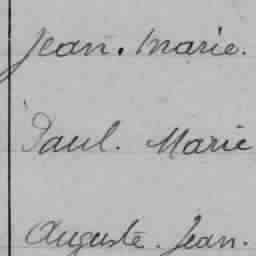 Jean. Marie.
Paul. Marie
Auguste. Jean.